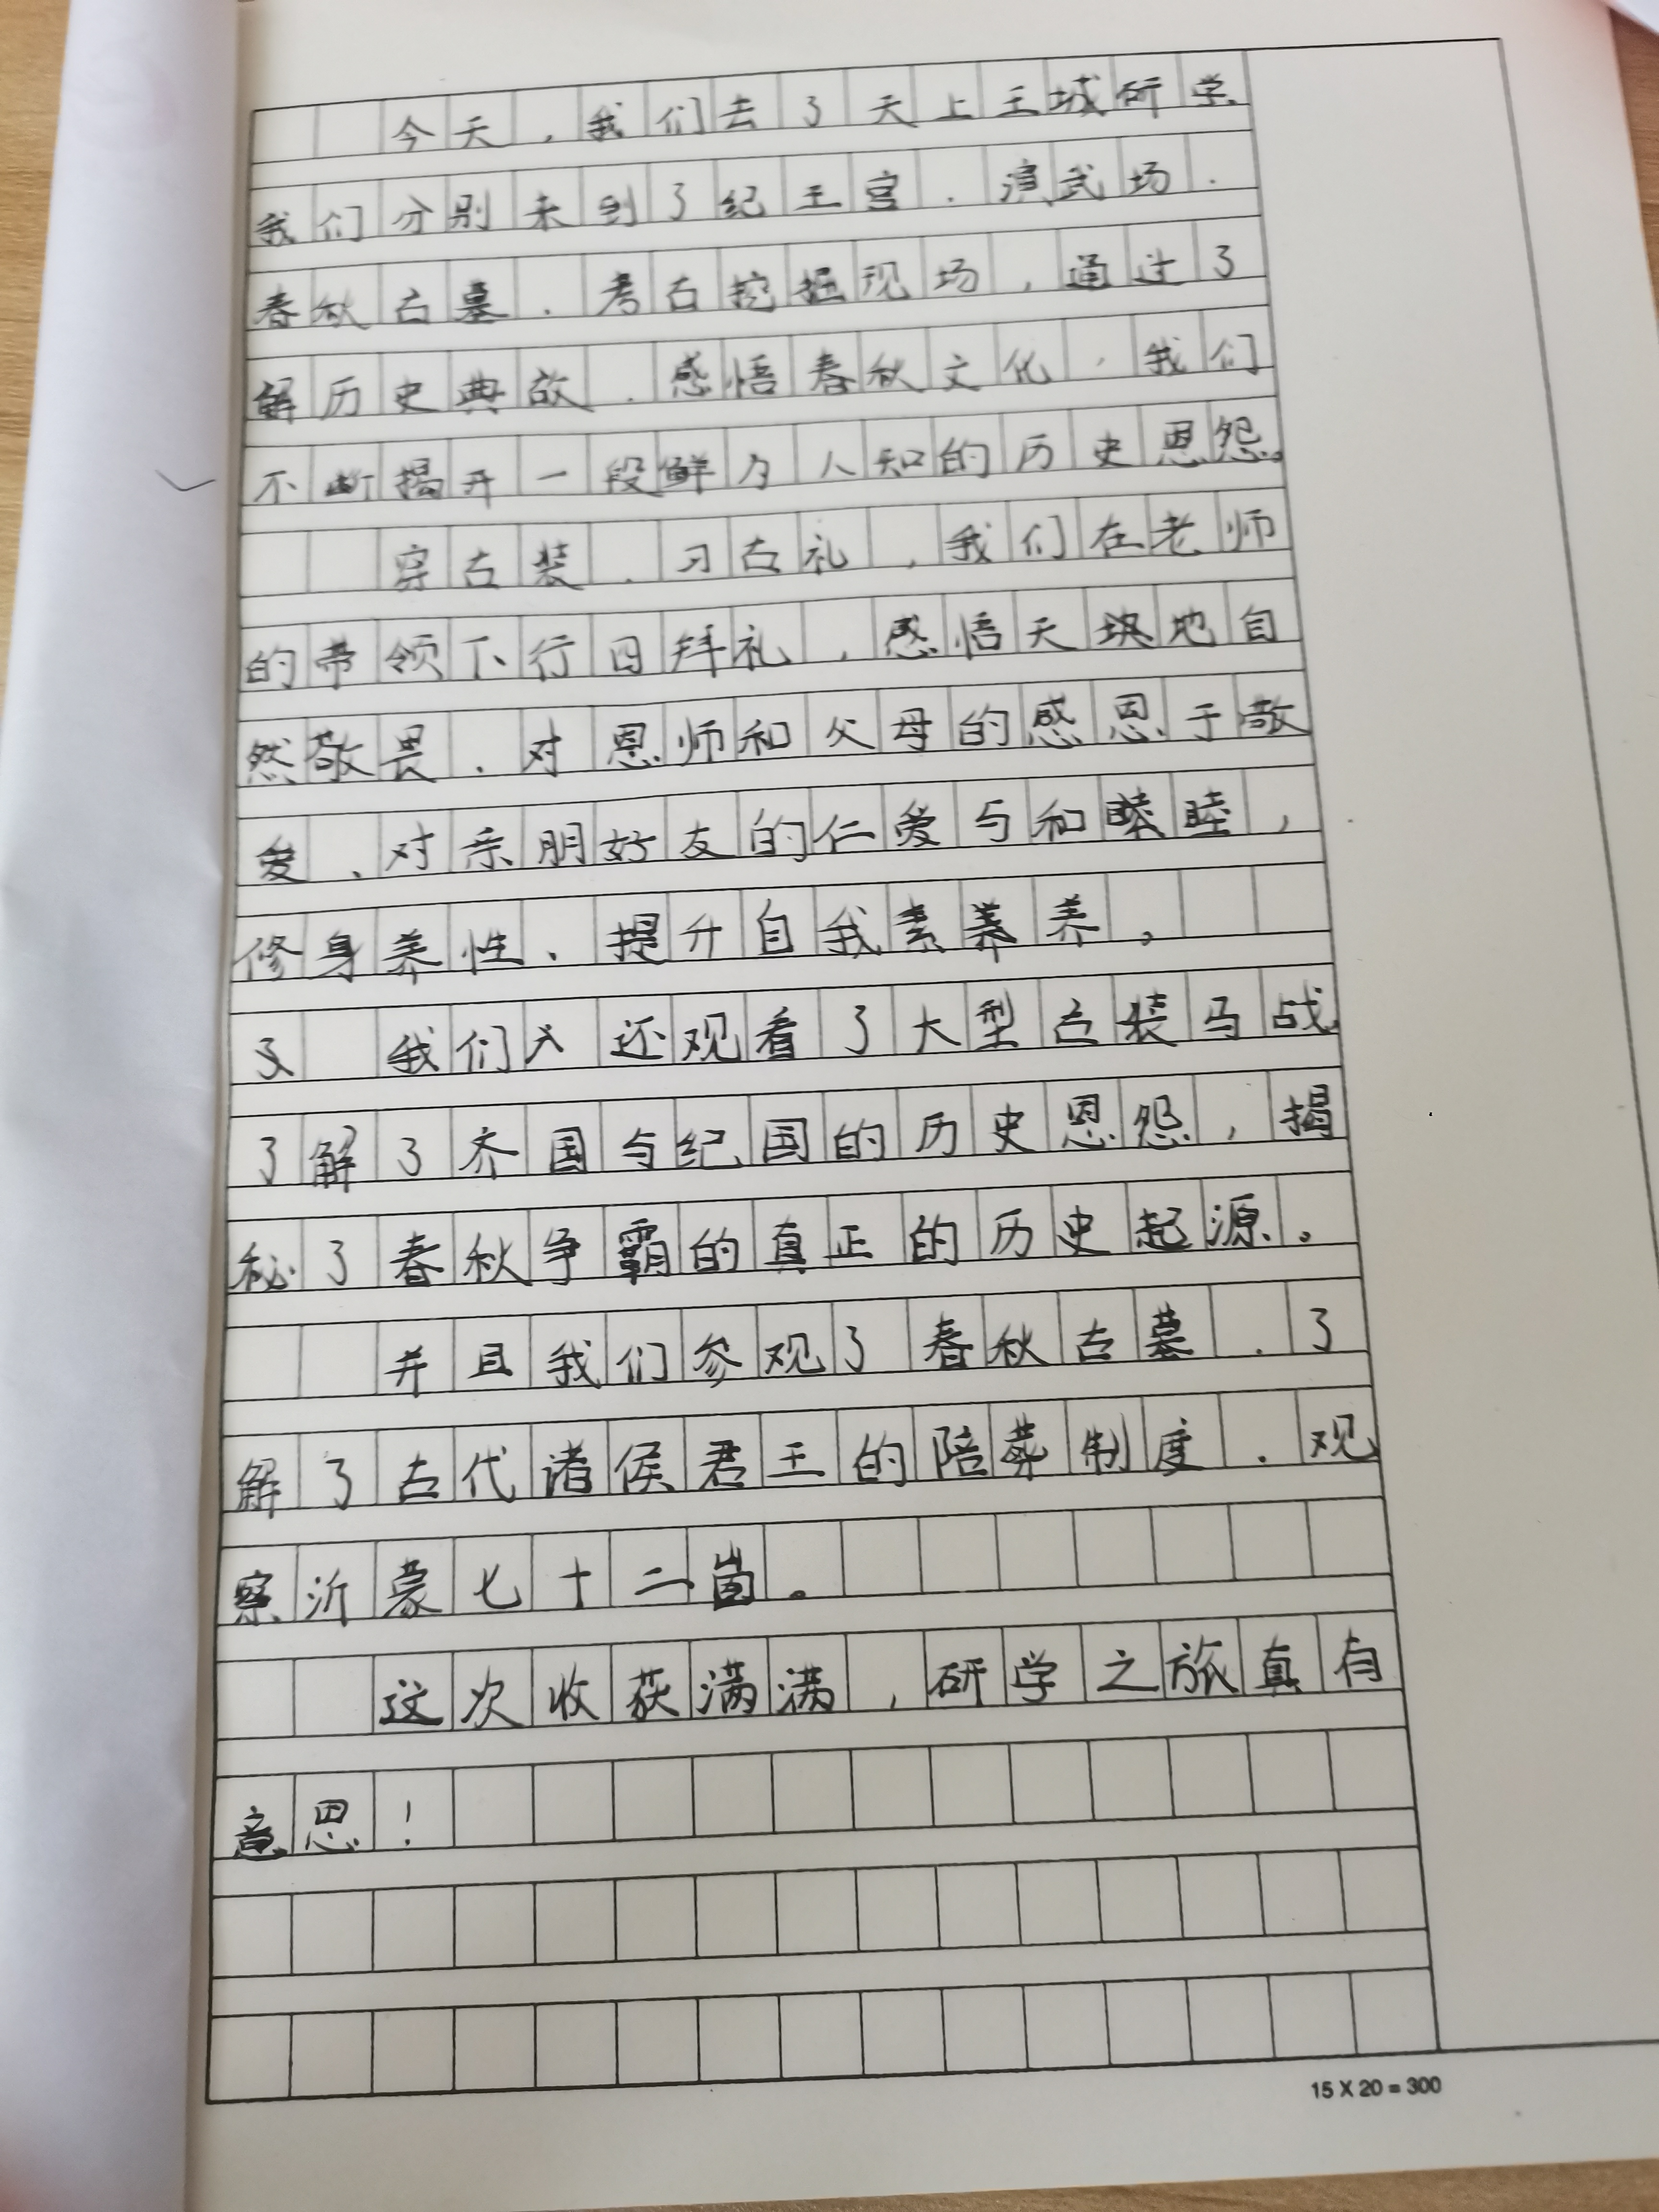 今天，我们去了天上王城研学、
我们分别来到了纪王宫、演武场、
春秋古墓、考古挖掘现场，通过了
解历史典故、感悟春秋文化，我们
不断揭开一段鲜为人知的历史恩怨。
穿古装、习古礼，我们在老师
的带领下行日拜礼，感悟天块地自
然敬畏、对恩师和父母的感恩于敬
爱、对亲朋好友的仁爱与和睦睦，
修身养性、提升自我素养养。
我们还观看了大型古装马战、
了解了齐国与纪国的历史恩怨，揭
秘了春秋争霸的真正的历史起源。
并且我们参观了春秋古墓、了
解了古代诸侯君王的陪葬制度、观
察沂蒙七十二崮。
这次收获满满，研学之旅真有
意思！
15 X 20 = 300